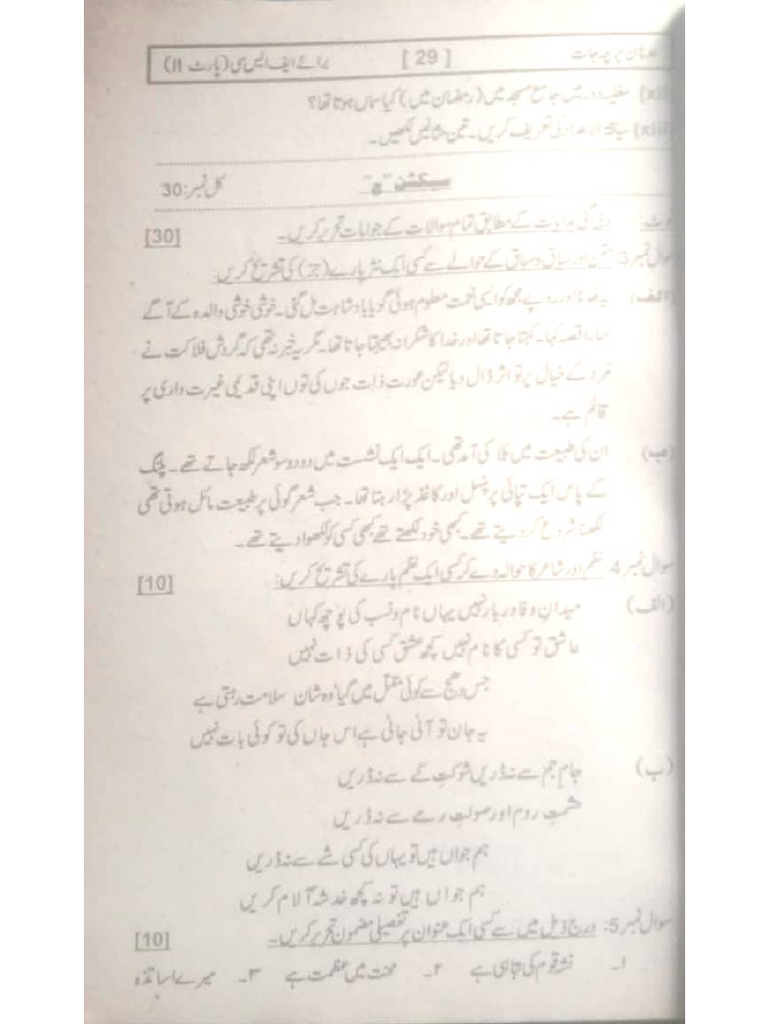 پرچہ جات [29] برائے ایف ایس سی (پارٹ II)
مغلیہ دور میں جامع مسجد میں (رمضان میں) کیا سماں ہوتا تھا؟
(xiii) سیاقۃ الاعداد کی تعریف کریں۔ تین مثالیں لکھیں۔
سیکشن "ج" کل نمبر: 30
دی گئی ہدایت کے مطابق تمام سوالات کے جوابات تحریر کریں۔ [30]
سوال نمبر 3 متن اور سیاق و سباق کے حوالے سے کسی ایک نثر پارے (جز) کی تشریح کریں:
(الف) یہ کھانا اور روپے مجھ کو ایسی نعمت معلوم ہوئی گویا بادشاہت مل گئی۔ خوشی خوشی والدہ کے آگے
سارا قصہ کہا۔ کہتا جاتا تھا اور خدا کا شکرانہ بھیجتا جاتا تھا۔ مگر یہ خبر نہ تھی کہ گردش فلاکت نے
مرد کے خیال پر تو اثر ڈال دیا لیکن عورت ذات جوں کی توں اپنی قدیمی غیرت داری پر
قائم ہے۔
(ب) ان کی طبیعت میں بلا کی آمد تھی۔ ایک ایک نشست میں دو دو سو شعر لکھ جاتے تھے۔ پلنگ
کے پاس ایک تپائی پر پنسل اور کاغذ پڑا رہتا تھا۔ جب شعر گوئی پر طبیعت مائل ہوتی تھی
لکھنا شروع کر دیتے تھے۔ کبھی خود لکھتے تھے کبھی کسی کو لکھوا دیتے تھے۔
سوال نمبر 4 نظم اور شاعر کا حوالہ دے کر کسی ایک نظم پارے کی تشریح کریں: [10]
(الف) میدانِ وفا دربار نہیں یہاں نام و نسب کی پوچھ کہاں
عاشق تو کسی کا نام نہیں کچھ عشق کسی کی ذات نہیں
جس دھج سے کوئی مقتل میں گیا وہ شان سلامت رہتی ہے
یہ جان تو آنی جانی ہے اس جاں کی تو کوئی بات نہیں
(ب) جامِ جم سے نہ ڈریں شوکتِ کے سے نہ ڈریں
حشمتِ روم اور صولتِ رے سے نہ ڈریں
ہم جواں ہیں تو یہاں کی کسی شے سے نہ ڈریں
ہم جواں ہیں تو نہ کچھ خدشہ آلام کریں
سوال نمبر 5: درج ذیل میں سے کسی ایک عنوان پر تفصیلی مضمون تحریر کریں۔ [10]
۱۔ نشہ قوم کی تباہی ہے ۲۔ محنت میں عظمت ہے ۳۔ میرے اساتذہ